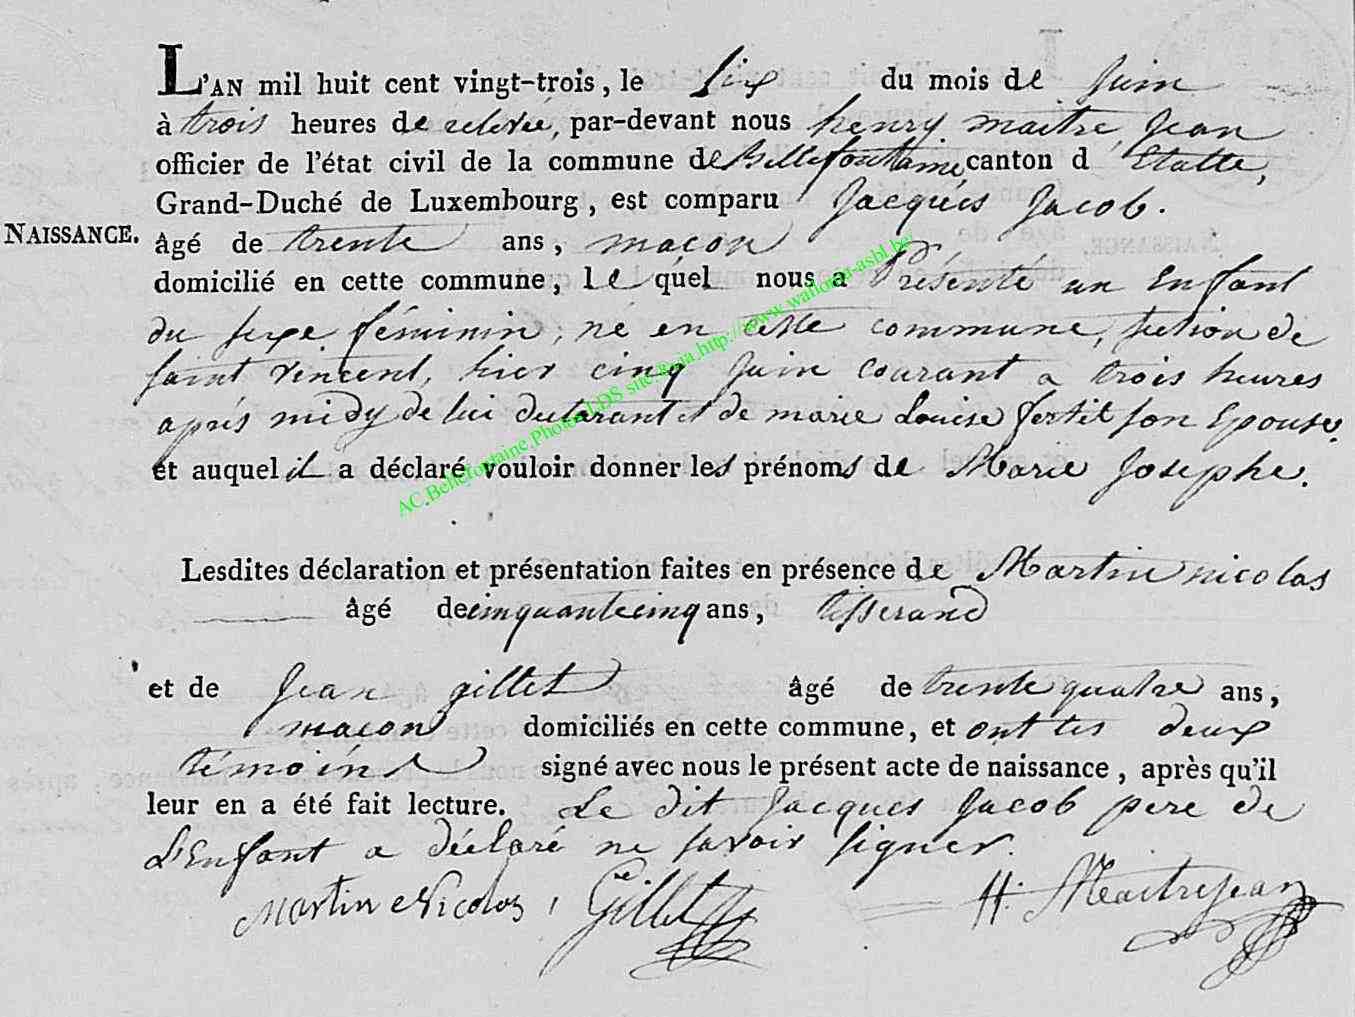 L'AN mil huit cent vingt-trois, le six du mois de Juin
à trois heures de relevée, par-devant nous henry maitre Jean
officier de l'état civil de la commune de Bellefontaine canton d'Etalle,
Grand-Duché de Luxembourg, est comparu Jacques Jacob.
NAISSANCE. âgé de trente ans, maçon
domicilié en cette commune, le quel nous a Présenté un Enfant
du sexe féminin, né en cette commune, section de
saint vincent, hier cinq Juin courant a trois heures
après midy de lui declarant et de marie Louise fertil son Epouse.
et auquel il a déclaré vouloir donner les prénoms de Marie Josephe.
Lesdites déclaration et présentation faites en présence de Martin nicolas
âgé de cinquante cinq ans, tisserand
et de Jean gillet âgé de trente quatre ans,
macon domiciliés en cette commune, et ont les deux
témoins signé avec nous le présent acte de naissance, après qu'il
leur en a été fait lecture. Le dit Jacques Jacob pere de
L'Enfant a déclaré ne savoir signer.
Martin Nicolas, Gillet H. Maitrejean
AC.Bellefontaine.Photos LDS site genea http://www.wallonia-asbl.be/